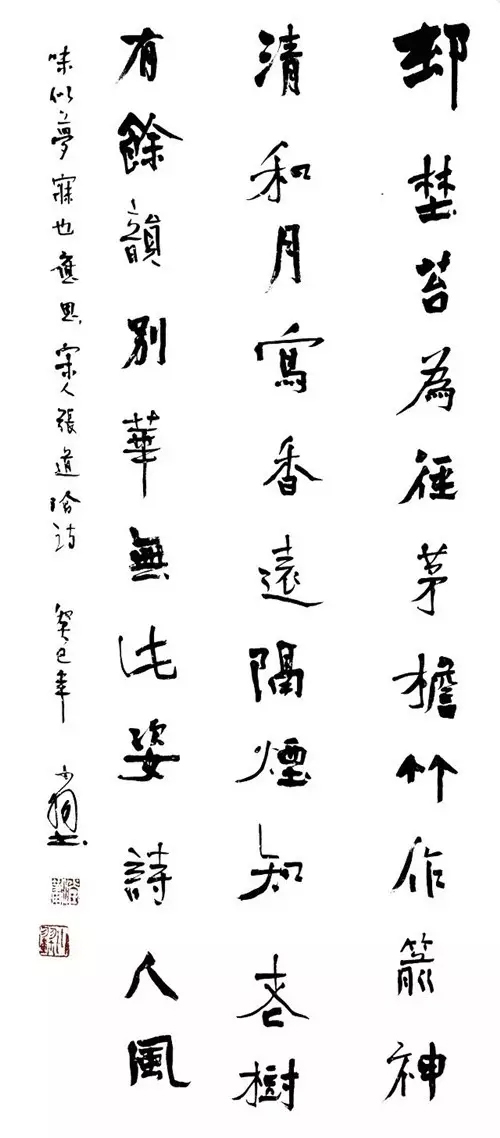 邨埜苔為徑茅檐竹作籬神
清和月寫香遠隔煙知老樹
有餘韻別華無此姿詩人風
味似夢寐也應思 宋人張道洽詩 癸巳年